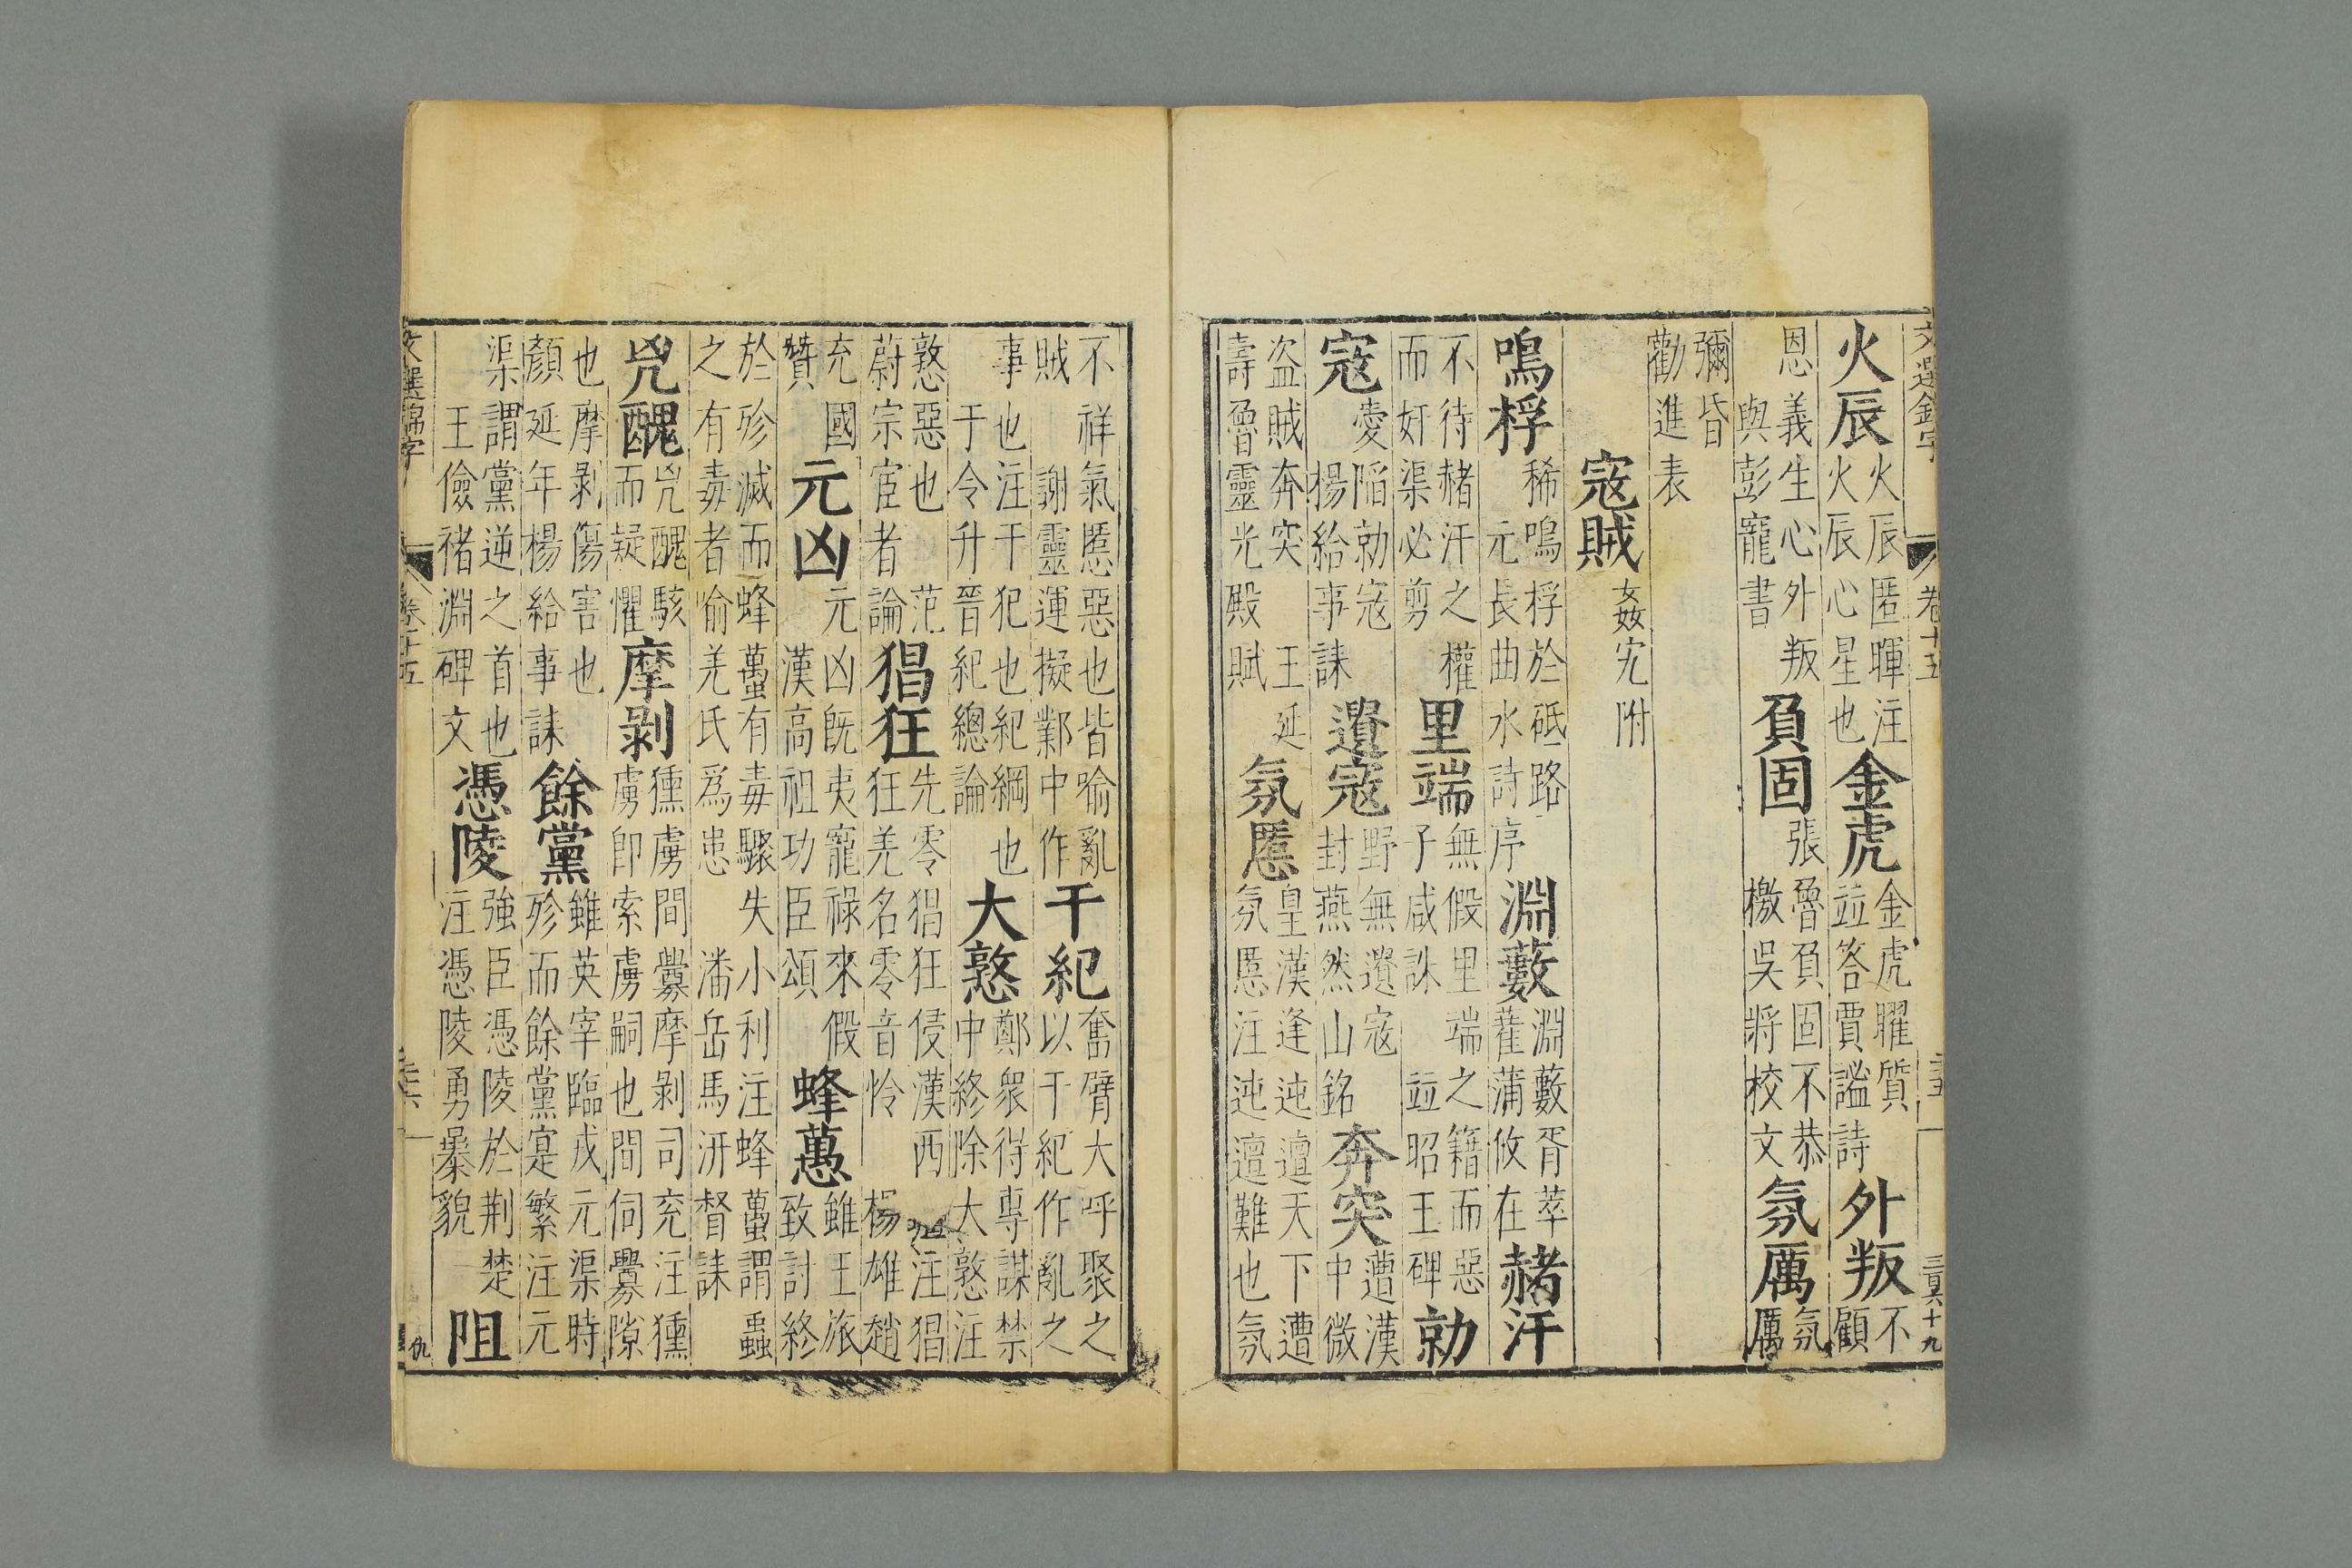 文選錦字 卷十五 三十五 三百六十九
火辰火辰匿暉注火辰心星也金虎金虎曜質並答賈謐詩外叛不顧
恩義生心外叛與彭寵書負固張魯負固不恭檄吳將校文氛厲氛厲
彌昏勸進表
寇賊姦宄附
鳴桴稀鳴桴於砥路元長曲水詩序淵藪淵藪胥萃雚蒲攸在赭汗
不待赭汗之權而奸渠必剪里端無假里端之籍而惡子咸誅並昭王碑勍
寇爰陷勍寇楊給事誄遺寇野無遺寇封燕然山銘奔突遭漢中微
盜賊奔突王延壽魯靈光殿賦氛慝皇漢逢迍邅天下遭氛慝注迍邅難也氛
不祥氣慝惡也皆喻亂賊謝靈運擬鄴中作干紀奮臂大呼聚之以干紀作亂之
事也注干犯也紀綱也于令升晉紀總論大憝鄭衆得專謀禁中終除大憝注
憝惡也范蔚宗宦者論猖狂先零猖狂侵漢西注猖狂羌名零音怜楊雄趙
充國贊元凶元凶旣夷寵祿來假漢高祖功臣頌蜂蠆雖王旅致討終
於殄滅而蜂蠆有毒驟失小利注蜂蠆謂蟲之有毒者喻羌氏爲患潘岳馬汧督誄
兇醜兇醜駭而疑懼摩剥獯虜間釁摩剥司兖注獯虜即索虜嗣也間伺釁隙
也摩剥傷害也顏延年楊給事誄餘黨雖英宰臨戎元渠時殄而餘黨寔繁注元
渠謂黨逆之首也王儉禇淵碑文憑陵強臣憑陵於荆楚注憑陵勇暴貌阻
文選錦字 卷十五 三十六